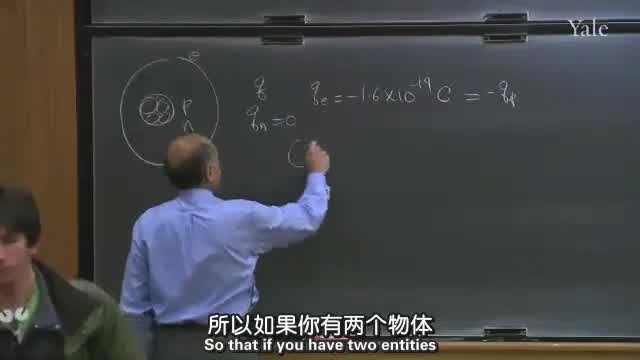 Yale
e
P
n
q
q_e = -1.6 × 10^-19 C = -q_p
q_n = 0
所以如果你有两个物体
So that if you have two entities